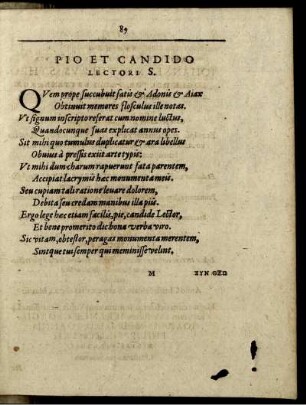 89
PIO ET CANDIDO
LECTORI S.
QVem prope succubuit satis & Adonis & Aiax
Obtinuit memores flosculus ille notas.
Vt signum inscripto referat cum nomine luctus,
Quandocunque suas explicat annus opes.
Sit mihi quo tumulus duplicatur & ara libellus
Obuius à pressis exiit arte typis:
Vt mihi dum charum rapuerunt fata parentem,
Accipiat lacrymis hac monumenta meis.
Seu cupiam tali ratione leuare dolorem,
Debita seu credam manibus illa piis.
Ergo lege hac etiam facilis, pie, candide Lector,
Et bene promerito dic bona verba viro.
Sic vitam, obtestor, peragas monumenta merentem,
Sintque tui semper qui meminisse velint.
M ΣΥΝ ΘΕΩ